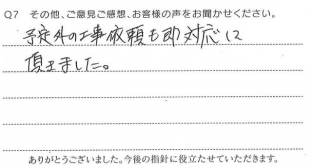 Q7 その他、ご意見ご感想、お客様の声をお聞かせください。
予定外の工事依頼も即対応に
頂きました。
ありがとうございました。今後の指針に役立たせていただきます。